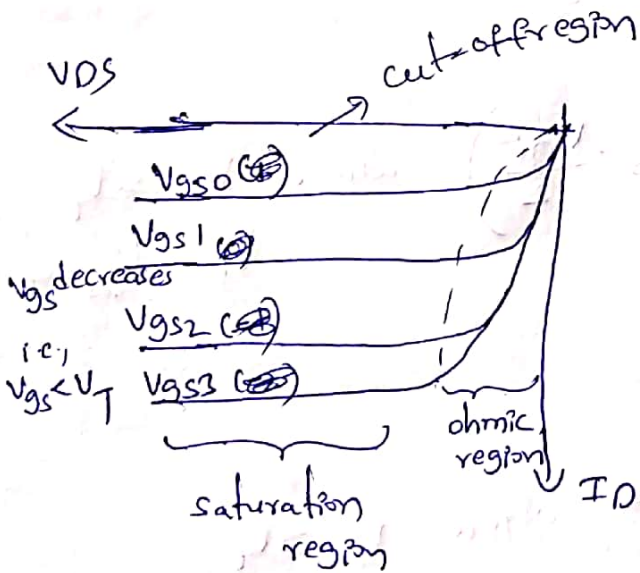 cut-off region
VDS
Vgs0
Vgs1
Vgs decreases
Vgs2
i.e.,
Vgs<VT
Vgs3
ohmic
region
ID
saturation
region